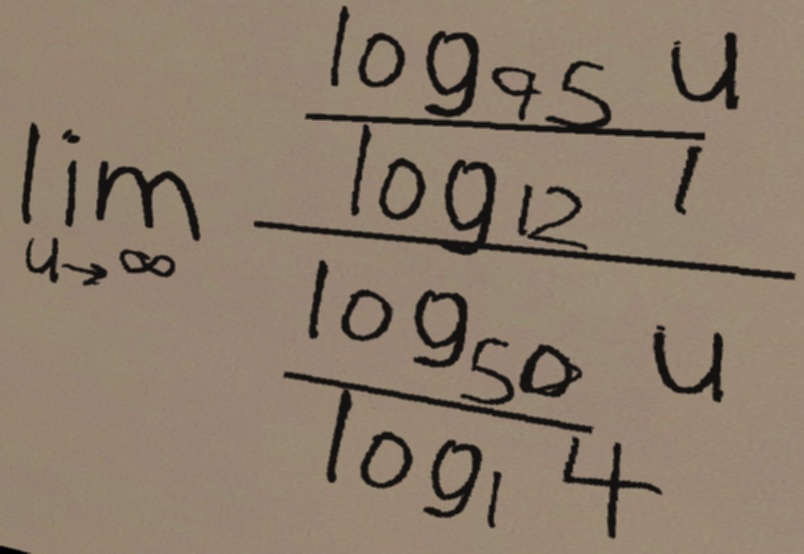 lim u→∞
log₉₅ u
log₁₂ 1
log₅₀ u
log₁ 4